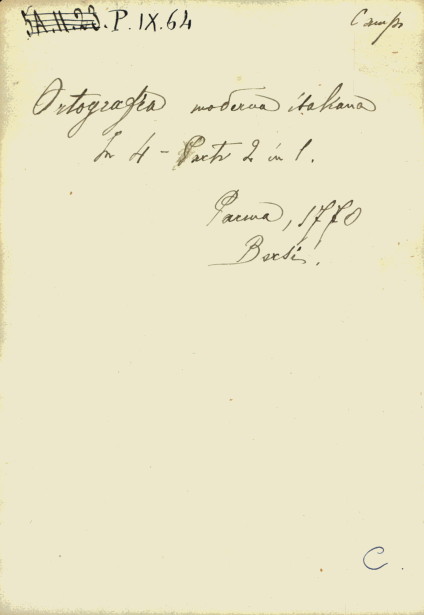 5A.11.23. P. IX. 64
Camp
Ortografia moderna italiana
In 4 - Parti 2 in 1.
Parma, 1770
Borsi.
C.